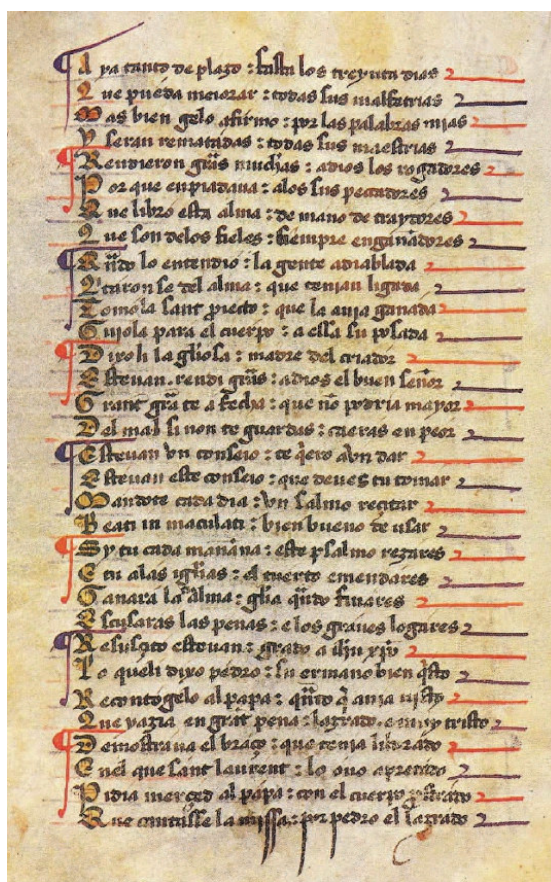 Aya tanto de plazo : fasta los treynta dias
Que pueda meiorar : todas sus malfetrias
Mas bien gelo afirmo : por las palabras mias
Y seran rematadas : todas sus maestrias
Rendieron grãs muchas : a dios los rogadores
Por que enpiadaua : a los sus pecadores
Que libro esta alma : de mano de traydores
Que son delos fieles : siempre engañadores
Qñdo lo entendio : la gente adiablada
Qitaron se del alma : que tenian ligada
Tomola sant proiecto : que la auja ganada
Guiola para el cuerpo : a ella su posada
Dixo li la gl̃iosa : madre del criador
Esteuan . rendi grãs : a dios el buen señor
Grant grã te a fecha : que nõ podria mayor
Del mal si non te guardas : caeras en peor
Esteuan vn conseio : te q̃ero avn dar
Esteuan este conseio : que deues tu tomar
Mandote cada dia : vn salmo recitar
Beati in maculati : bien bueno de usar
Sy tu cada mañana : este psalmo rezares
E tu alas igl̃ias : el tuerto emendares
Ganara la alma : gl̃ia qñdo finares
Escusaras las penas : e los graues logares
Resusçito esteuan : grado a ih̃u xp̃o
Lo queli dixo pedro : su ermano bien q̃sto
Recontogelo al papa : qñto q̃ auja uisto
Que yazia en grat pena : lazrado . e muy tristo
Demostraua el braço : que tenia liurado
Enel que sant laurent : lo ouo apretado
Pidia merçed al papa : con el cuerpo p̃strado
Que cantasse la missa : por pedro el lazrado